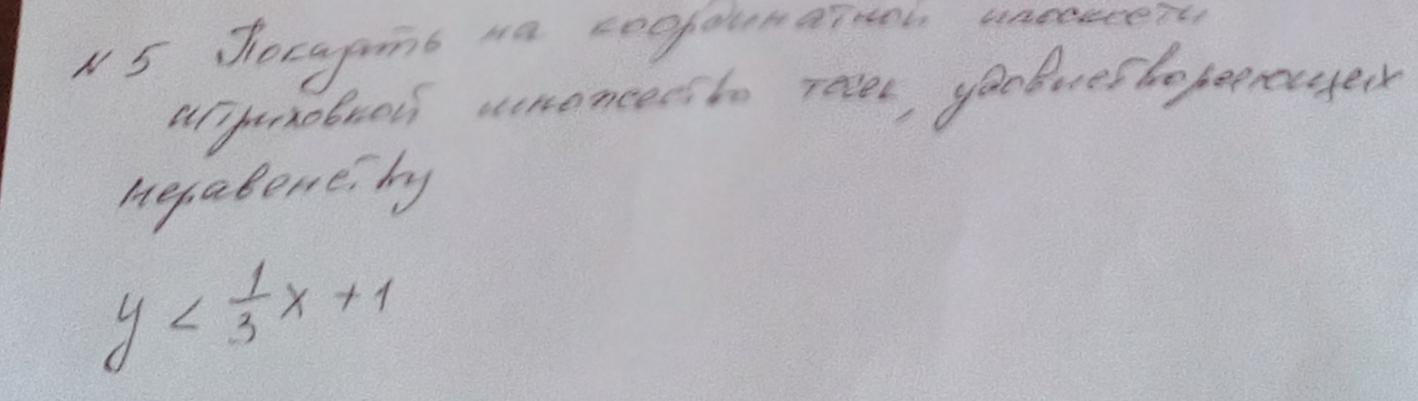 N 5 Показать на координатной плоскости
штриховкой множество точек, удовлетворяющих
неравенству
y < 1/3 x + 1